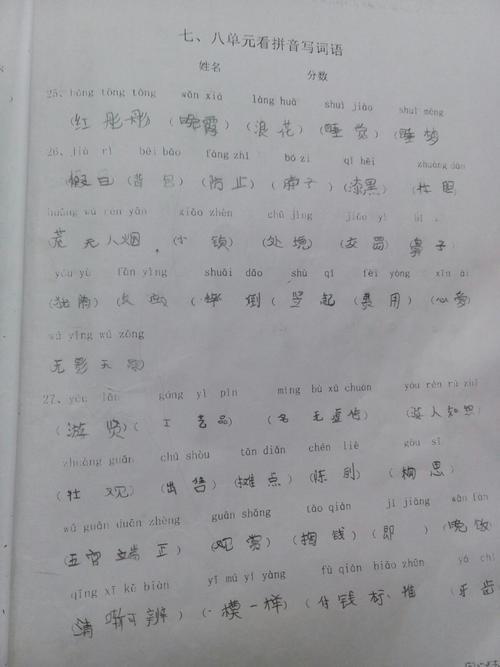 七、八单元看拼音写词语
姓名 分数
25、hóng tōng tōng wǎn xiá làng huā shuì jiào shuì mèng
(红彤彤) (晚霞) (浪花) (睡觉) (睡梦
26、jià rì bēi bāo fáng zhǐ bó zi qī hēi zhuàng dǎn
(假日 (背包 (防止) (脖子) (漆黑) (壮胆
huāng wú rén yān xiǎo zhèn chǔ jìng jiāo yì
(荒无人烟 (小镇 (处境) ( 鼻子)
yōu yù fǎn yìng shuāi dǎo shù qǐ fèi yòng xīn ài
(摔倒 (竖起 (费用) (心爱
wú yǐng wú zōng
无影无
27、yóu lǎn gōng yì pǐn míng bù xū chuán yóu rén rú zhī
(游 ) (工艺品) (名无虚传) (游人如
zhuàng guān chū shòu tān diǎn chén liè gòu sī
(壮观 (出售 (摊点) (陈列 (构思)
wǔ guān duān zhèng guān shǎng tāo qián jí jiāng wǎn fàn
(五官端正) (观赏) (掏钱) (即 ) (晚饭
qīng xī kě biàn yī mú yī yàng fù qián biāo zhǔn yá chǐ
(清晰可辨) ( 模一样) (付钱标准 (牙齿